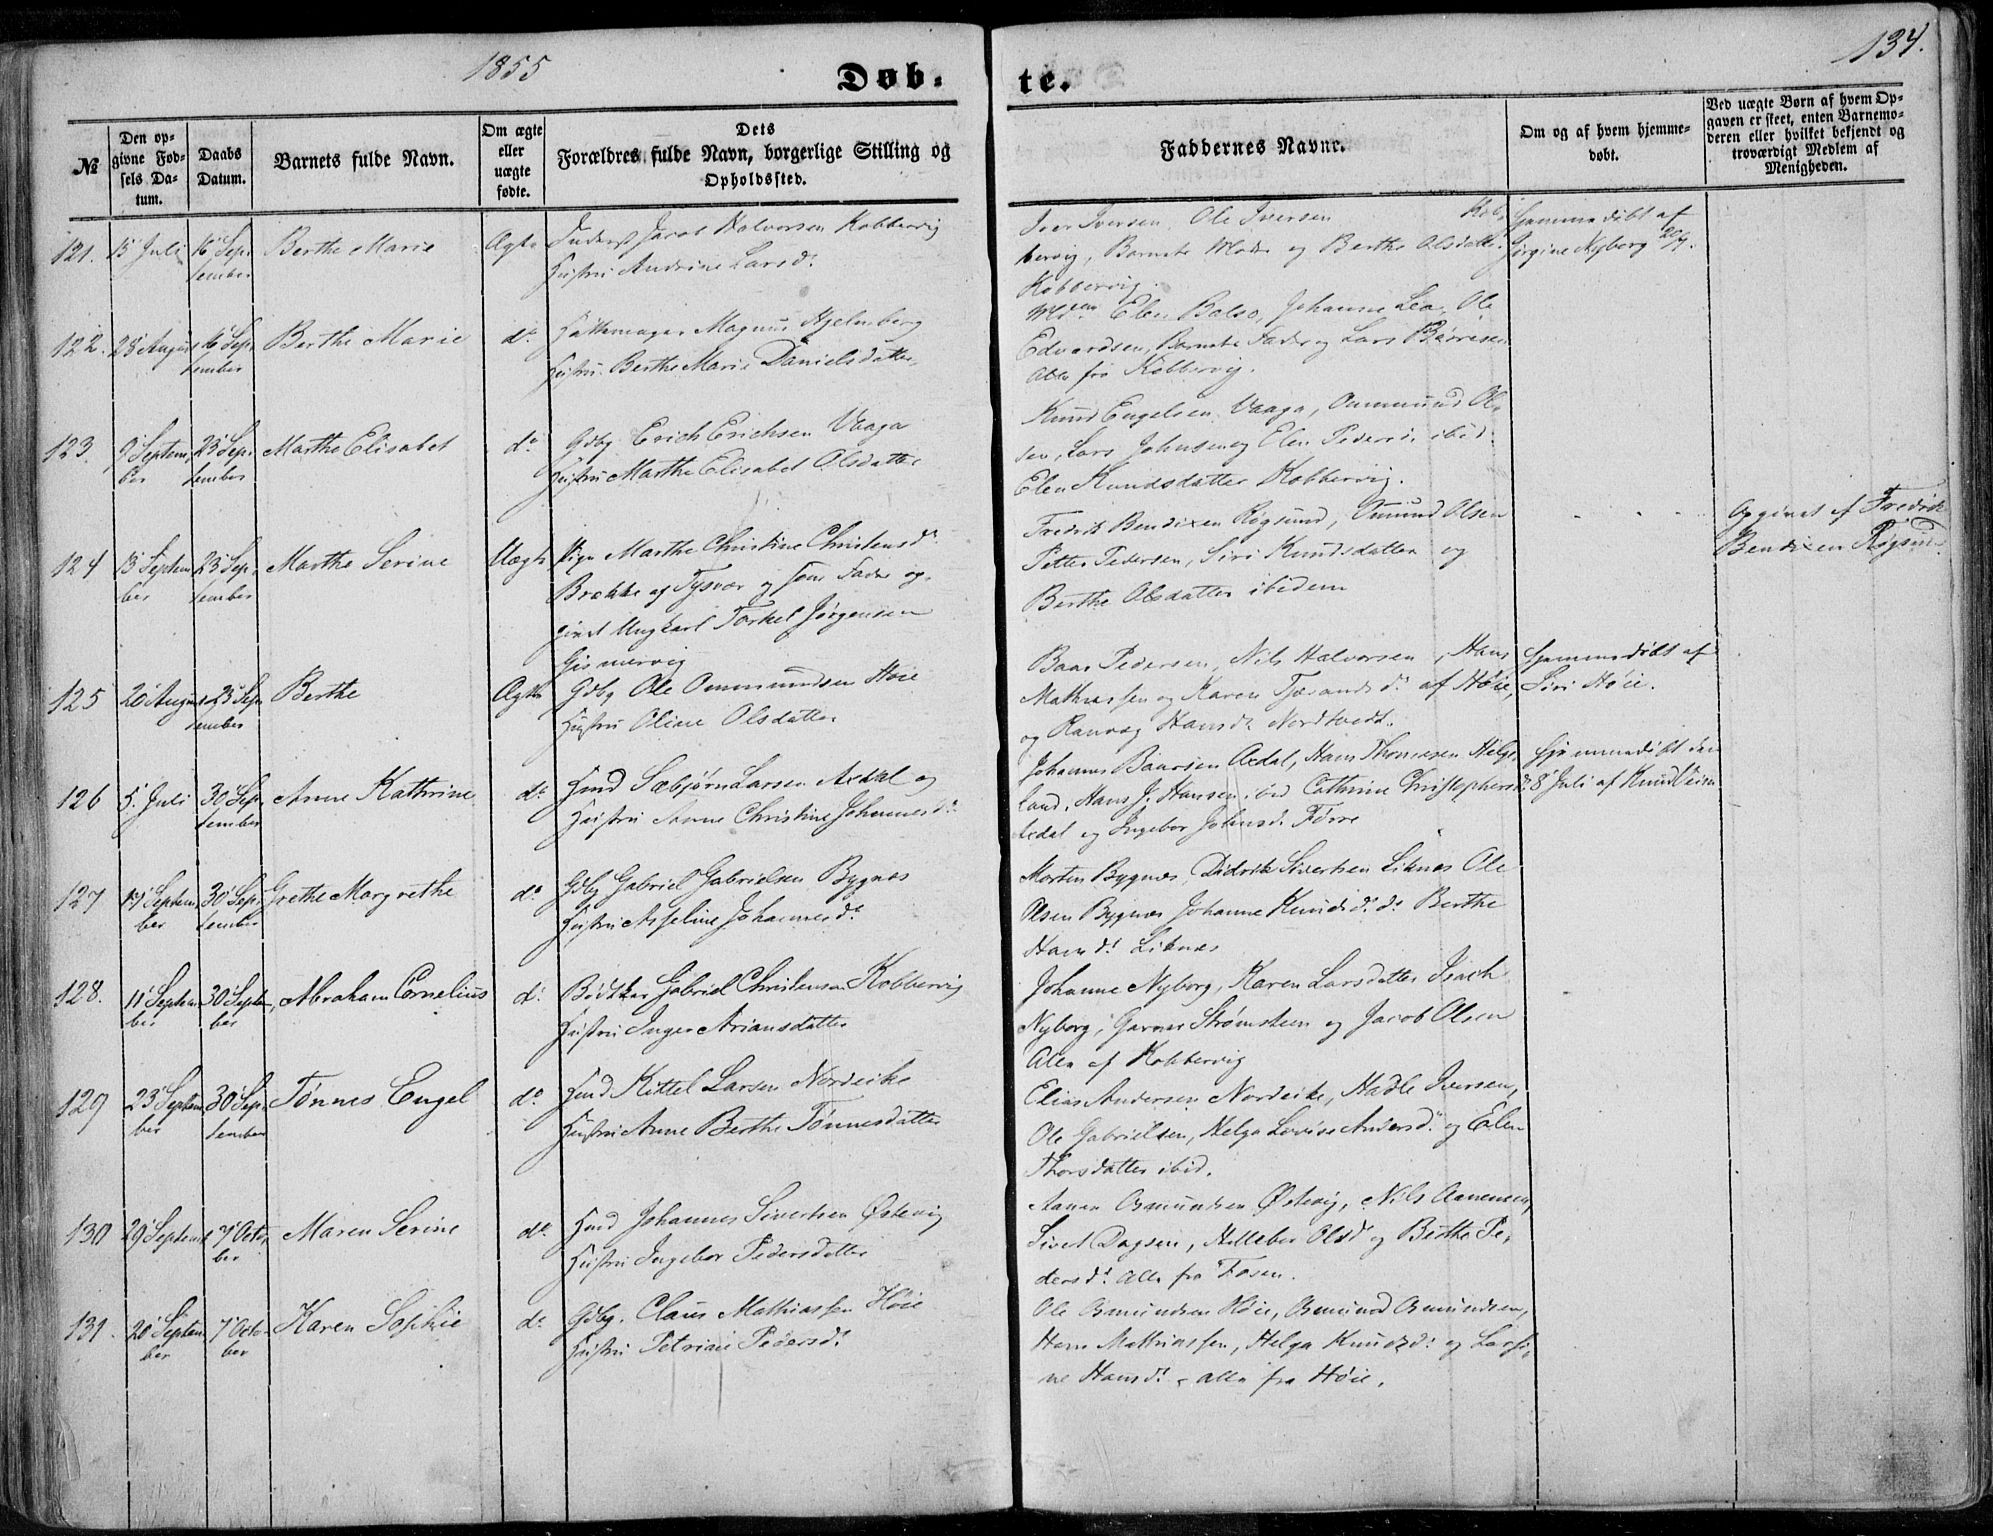 1855
134.
Døb-
te.
№
Den op-
givne Fød-
sels Da-
tum.
Daabs
Datum.
Barnets fulde Navn.
Om ægte
eller
uægte
fødte.
Dets
Forældres fulde Navn, borgerlige Stilling og
Opholdssted.
Faddernes Navne.
Om og af hvem hjemme-
døbt.
Ved uægte Børn af hvem Op-
gaven er skeet, enten Barnemo-
deren eller hvilket bekjendt og
troværdigt Medlem af
Menigheden.
121. 15 Juli 16 Sep-
tember
Berthe Marie
Ægte
Jacob Halvorsen Kobbervig
Hustru Andrine Larsd.
Iver Iversen, Ole Iversen Kob-
bervig, Barnets Moder og Berthe Olsdatter
Kobbervig.
Hjemmedøbt af
Jørgine Nyborg 20/7.
122. 28 August 16 Sep-
tember
Berthe Marie
do
Magnus Hjelmberg
Hustru Berthe Marie Danielsdatter
Elen Balso, Johanne Lea, Ole
Edvardsen, Barnets Fader og Lars Børresen
Alle fra Kobbervig.
123. 9 Septem-
ber
23 Sep-
tember
Marthe Elisabet
do
Gdbg Erich Erichsen Vaaga
Hustru Marthe Elisabet Olsdatter
Knud Engelsen Vaaga, Ommund Ol-
sen, Lars Johnsen og Elen Pedersd. ibid.
Elen Knudsdatter Kobbervig.
124 13 Septem
ber
23 Sep-
tember
Marthe Serine
Uægte
Pige Marthe Christine Christensd.
Brække af Tysvær og som Fader op-
givet Ungkarl Torkel Jørgensen
Gismervig
Fredrik Bendixen Røgsund, Omund Olsen
Petter Pedersen, Siri Knudsdatter og
Berthe Olsdatter ibidem
Opgivet af Fredrik
Bendixen Røgsund.
125 20 August 23 Sep-
tember
Berthe
Ægte
Gdbg Ole Ommundsen Høie
Hustru Oline Olsdatter
Baar Pedersen, Nils Halvorsen, Hans
Mathiassen og Karen Tjerandsd. af Høie,
og Ranvæg Hansd. Nordtvedt.
Hjemmedøbt af
Siri Høie.
126 5. Juli 30 Sep-
tember
Anne Kathrine
do
Hmd Sæbjørn Larsen Axdal og
Hustru Anne Christine Johannesd.
Johannes Baarsen Axdal, Hans Thomesen Helge-
land, Hans J. Hansen ibid Cathrine Christophersd.
Axdal og Ingebor Johnsd. Førre
Hjemmedøbt den
8 Juli af Knud
127 17 Septem-
ber
30 Sep-
tember
Grethe Margrethe
do
Gdbg Gabriel Gabrielsen Bygnes
Hustru Asseline Johannesd.
Morten Bygnes, Didrik Sivertsen Liknes Ole
Olsen Bygnes Johanne Knudsd. do Berthe
Hansd. Liknes
128. 11 Septem
ber
30 Septem-
ber
Abraham Cornelius
do
Bødtker Gabriel Christensen Kobbervig
Hustru Inger Ariansdatter
Johanne Nyborg, Karen Larsdatter Isach
Nyborg, Garner Strømsteen og Jacob Olsen
Alle af Kobbervig
129 23 Septem
ber
30 Sep-
tember
Tønnes Engel
do
Hmd Kittel Larsen Nordeike
Hustru Anne Berthe Tønnesdatter
Elias Andersen Nordeike, Hadle Iversen,
Ole Gabrielsen, Helga Lovise Andersd. og Elen
Thorsdatter ibid.
130 29 Septemb 7 Octo-
ber
Maren Serine
do
Hmd Johannes Sivertsen Østevig
Hustru Ingebor Pedersdatter
Aanen Osmundsen Østevig, Nils Aanensen,
Sivert Dagsen, Hellebor Olsd og Berthe Pe-
dersd. Alle fra Fosen.
131. 20 Septem
ber
7 Octo-
ber
Karen Sophie
do
Gdbg. Claus Mathiassen Høie
Hustru Petriane Pedersd.
Ole Osmundsen Høie, Osmund Osmundsen,
Hans Mathiassen, Helga Knudsd. og Larsi-
ne Hansd. alle fra Høie.